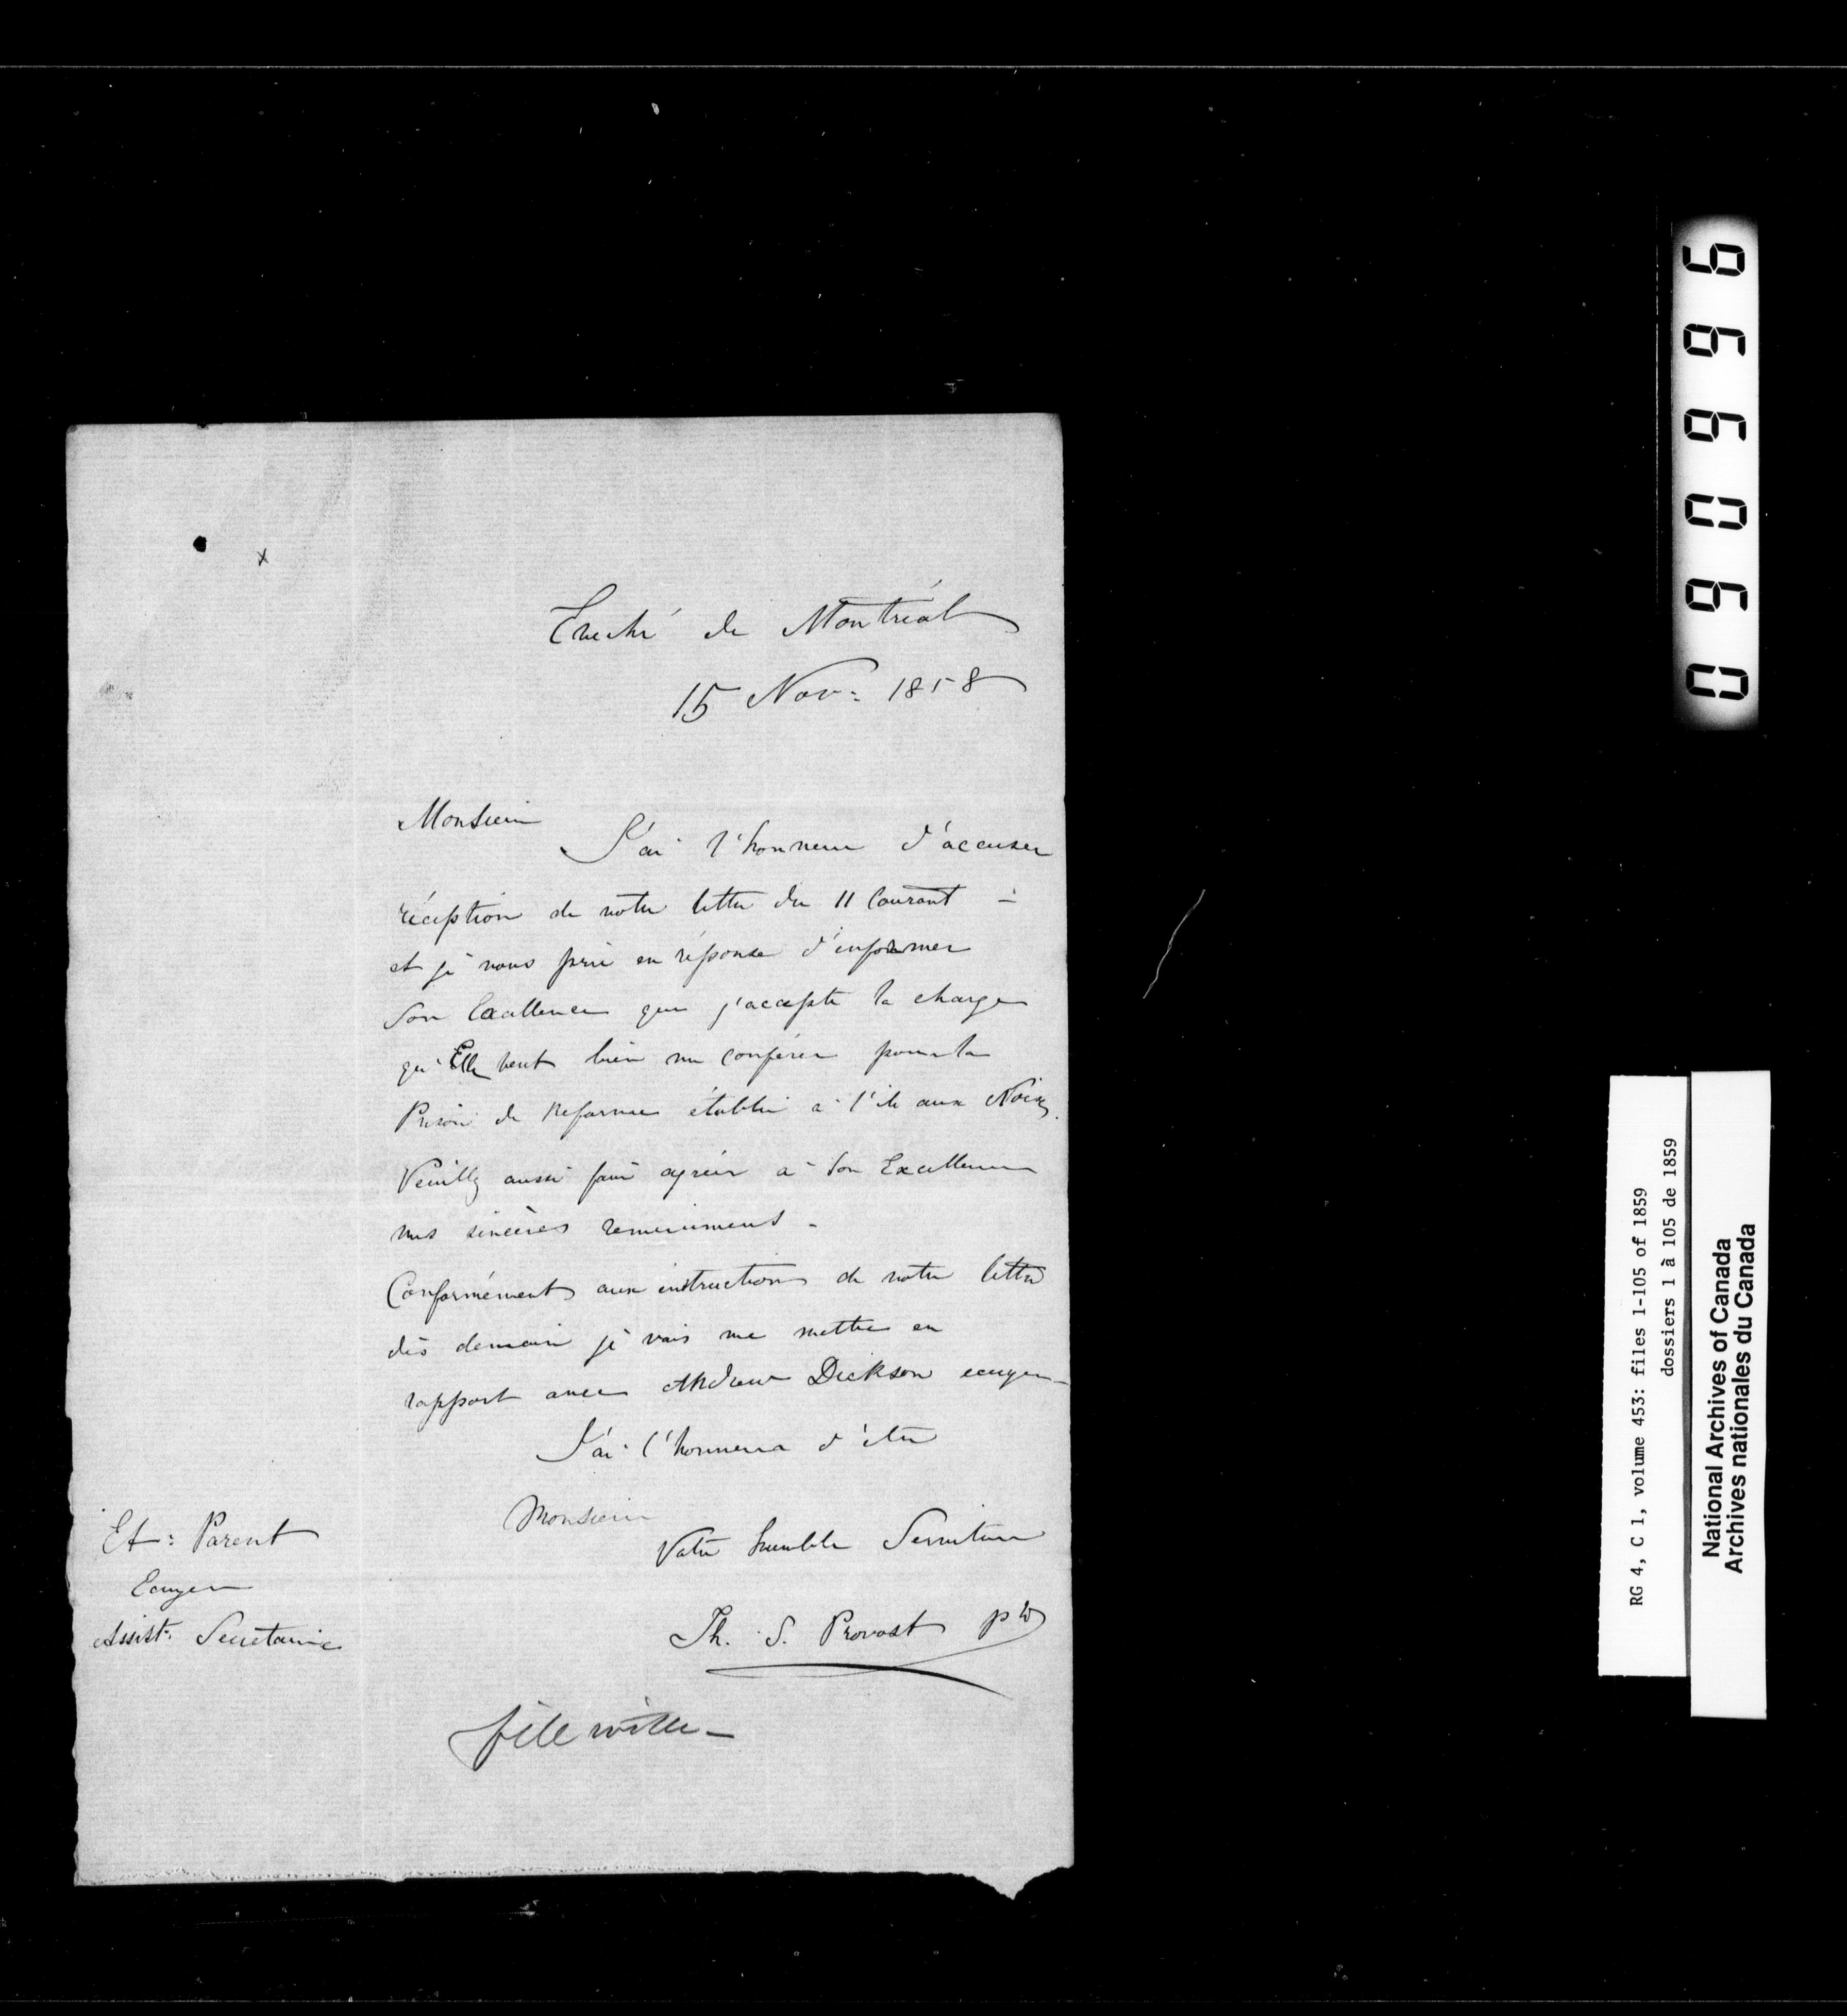 x
Evêché de Montréal
15 Nov: 1858
Monsieur
J'ai l'honneur d'accuser
réception de votre lettre du 11 Courant -
et je vous prie en réponse d'informer
Son Excellence que j'accepte la charge
qu'Elle veut bien me conférer pour la
Prison de Reforme établie à l'ile aux Noix.
Veuillez aussi faire agréer à Son Excellence
mes sincères remerciments -
Conformément aux instructions de votre lettre
dès demain je vais me mettre en
rapport avec Andrew Dickson ecuyer -
J'ai l'honneur d'être
Monsieur
Votre humble Serviteur
Th. S. Provost ptre
Et: Parent
Ecuyer
Assist. Secretaire
file with -
060999
RG 4, C 1, volume 453: files 1-105 of 1859
dossiers 1 à 105 de 1859
National Archives of Canada
Archives nationales du Canada